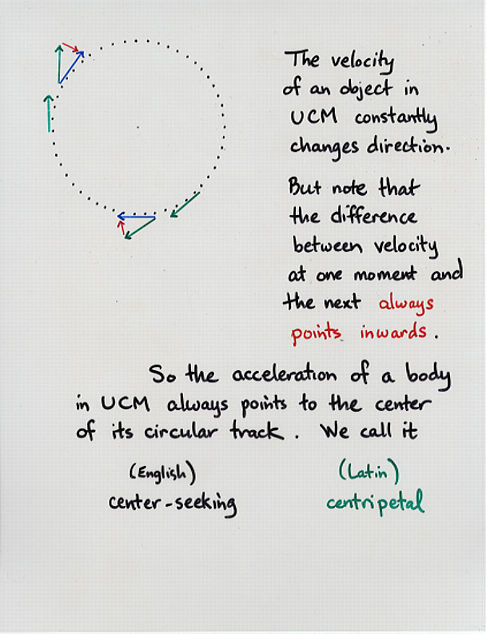 The velocity
of an object in
UCM constantly
changes direction.
But note that
the difference
between velocity
at one moment and
the next always
points inwards.
So the acceleration of a body
in UCM always points to the center
of its circular track. We call it
(English)
center-seeking
(Latin)
centripetal